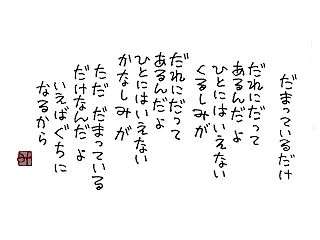 だまっているだけ
だれにだって
あるんだよ
ひとにはいえない
くるしみが
だれにだって
あるんだよ
ひとにはいえない
かなしみが
ただだまっている
だけなんだよ
いえばぐちに
なるから